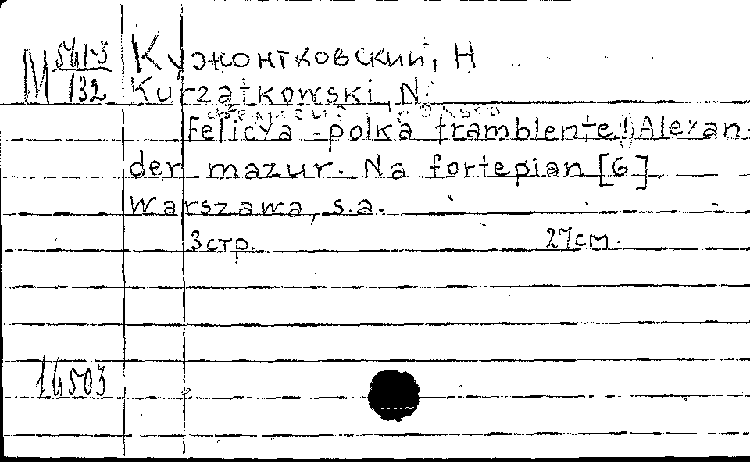 М 561-3
132
Кужонтковский, Н
Kurzątkowski, N.
Felicya - polka tramblente! Alexan-
der mazur. Na fortepian [G]
Warszawa, s.a.
3 стр. 27 см.
16503